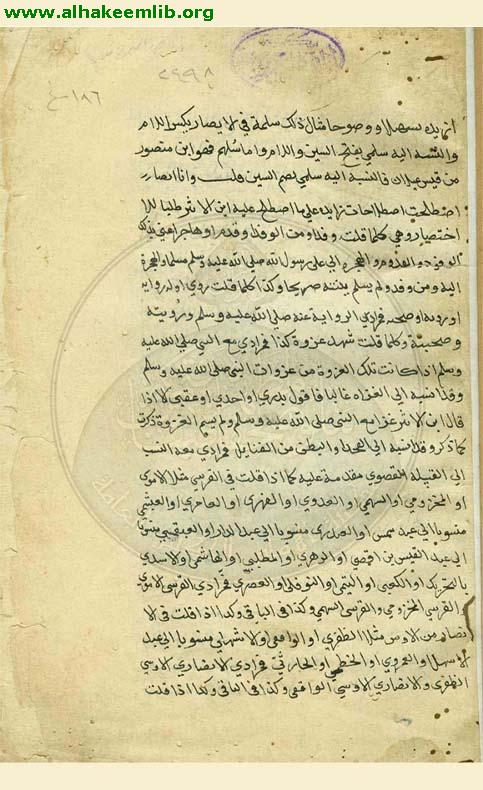 www.alhakeemlib.org
٢٤٩٨
١٨٦
سهلا ووضوحا مثال ذلك سلمة في الانصار بكسر اللام
والنسبة اليه سلمي بفتح السين واللام واما سليم فهو ابن منصور
من قيس عيلان فالنسبة اليه سلمي بضم السين قلت وانا
اصطلحت اصطلاحات زايدة علي ما اصطلح عليه ابن الاثير طلبا للا
اختصار وهي كلما قلت وفادة من الوفد او قدم او هاجر اعني بذلك
الوفد والقدوم والهجرة الي علي رسول الله صلي الله عليه وسلم مسلما والهجرة
اليه ومن وفد ولم يسلم بينته صريحا وكذا كلما قلت روي او له رواية
او رويه او صحبه فمرادي الرواية عنه صلي الله عليه وسلم ورويته
وصحبته وكلما قلت شهد غزوة كذا فمرادي مع النبي صلي الله عليه
وسلم اذا كانت تلك الغزوة من غزوات النبي صلي الله عليه وسلم
وقد انسبه الي الغزاه غالبا فاقول بدري او احدي او عقبي لا اذا
قال ابن الاثير غزا مع النبي صلي الله عليه وسلم ولم يسم الغزوة ذكرت
كما ذكر وقد انسبه الي الفخذ والبطن من القبايل فمرادي معه النسب
الي القبيلة القصوي مقدمة عليه كما اذا قلت في القرشي مثلا الاموي
او المخزومي او السهمي او العدوي او الفهري او العامري او العبشمي
منسوبا الي عبد شمس او العبدري منسوبا الي عبد الدار او العبقسي منسوبا
الي عبد القيس بن افصي او الزهري او المطلبي او الهاشمي والاسدي
بالتحريك او الكعبي او التيمي او النوفلي او فمرادي القرشي الاموي
القرشي المخزومي والقرشي السهمي وكذا في الباقي وكذا اذا قلت في الا
نصار من الاوس مثلا الظفري او الواقفي او الاشهلي منسوبا الي عبد
الاشهل او العمروي او الخطمي او الحارثي فمرادي الانصاري الاوسي
الظفري والانصاري الاوسي الواقفي وكذا في الباقي وكذا اذا قلت